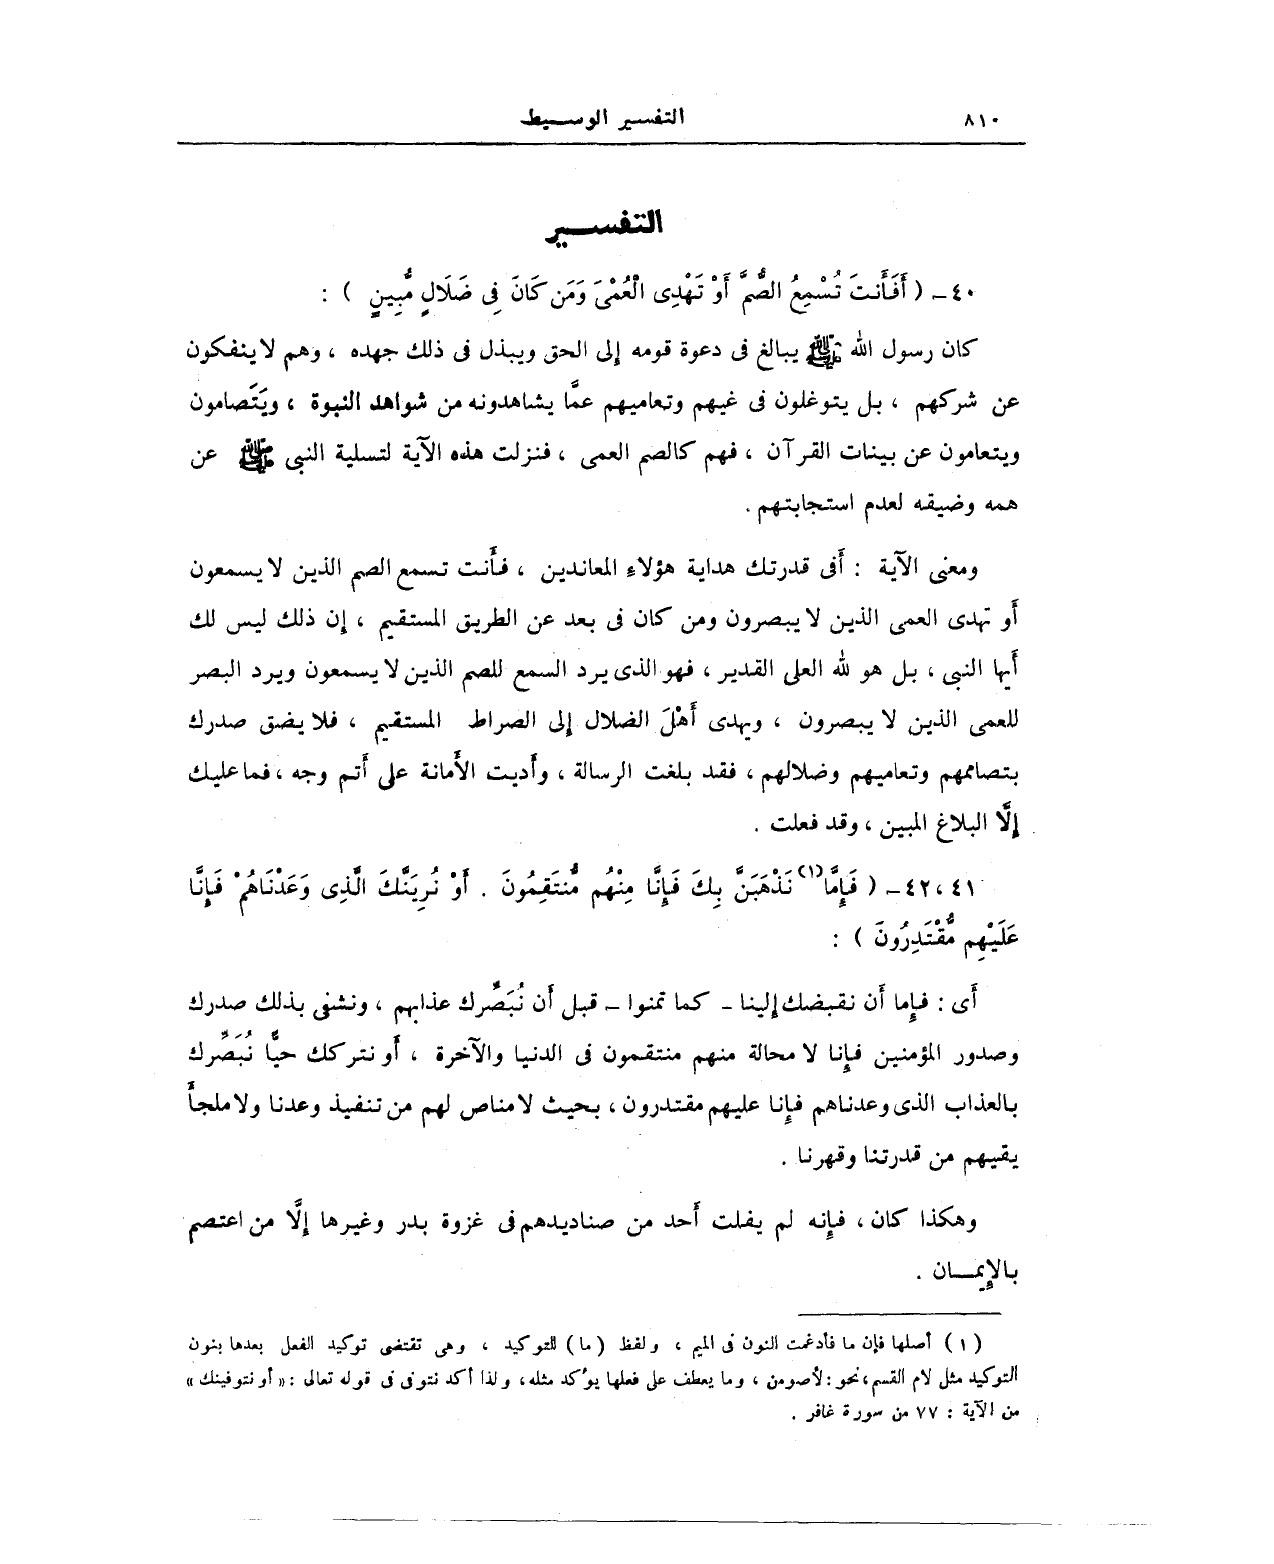 ٨١٠
التفسير الوسيط
التفسير
٤٠ ـ ( أَفَأَنتَ تُسْمِعُ الصُّمَّ أَوْ تَهْدِى الْعُمْىَ وَمَن كَانَ فِى ضَلَالٍ مُّبِينٍ ) :
كان رسول الله ﷺ يبالغ فى دعوة قومه إلى الحق ويبذل فى ذلك جهده ، وهم لا ينفكون
عن شركهم ، بل يتوغلون فى غيهم وتعاميهم عمَّا يشاهدونه من شواهد النبوة ، ويَتَصامون
ويتعامون عن بينات القرآن ، فهم كالصم العمى ، فنزلت هذه الآية لتسلية النبى ﷺ عن
همه وضيقه لعدم استجابتهم .
ومعنى الآية : أَفى قدرتك هداية هؤلاءِ المعاندين ، فأَنت تسمع الصم الذين لا يسمعون
أَو تهدى العمى الذين لا يبصرون ومن كان فى بعد عن الطريق المستقيم ، إن ذلك ليس لك
أَيها النبى ، بل هو لله العلى القدير ، فهو الذى يرد السمع للصم الذين لا يسمعون ويرد البصر
للعمى الذين لا يبصرون ، ويهدى أَهْلَ الضلال إلى الصراط المستقيم ، فلا يضق صدرك
بتصاممهم وتعاميهم وضلالهم ، فقد بلغت الرسالة ، وأَديت الأَمانة على أَتم وجه ، فما عليك
إلَّا البلاغ المبين ، وقد فعلت .
٤١ ، ٤٢ ـ ( فَإِمَّا(١) نَذْهَبَنَّ بِكَ فَإِنَّا مِنْهُم مُّنتَقِمُونَ . أَوْ نُرِيَنَّكَ الَّذِى وَعَدْنَاهُمْ فَإِنَّا
عَلَيْهِم مُّقْتَدِرُونَ ) :
أَى : فإما أَن نقبضك إلينا ـ كما تمنوا ـ قبل أَن نُبَصِّرك عذابهم ، ونشفى بذلك صدرك
وصدور المؤمنين فإنا لا محالة منهم منتقمون فى الدنيا والآخرة ، أَو نتركك حيًّا نُبَصِّرك
بالعذاب الذى وعدناهم فإنا عليهم مقتدرون ، بحيث لا مناص لهم من تنفيذ وعدنا ولا ملجأَ
يقيهم من قدرتنا وقهرنا .
وهكذا كان ، فإنه لم يفلت أَحد من صناديدهم فى غزوة بدر وغيرها إلَّا من اعتصم
بالإيمـــان .
(١) أصلها فإن ما فأدغمت النون فى الميم ، ولفظ (ما) للتوكيد ، وهى تقتضى توكيد الفعل بعدها بنون
التوكيد مثل لام القسم ، نحو : لأصومن ، وما يعطف على فعلها يؤكد مثله ، ولذا أكد نتوفى فى قوله تعالى : « أو نتوفينك »
من الآية : ٧٧ من سورة غافر .